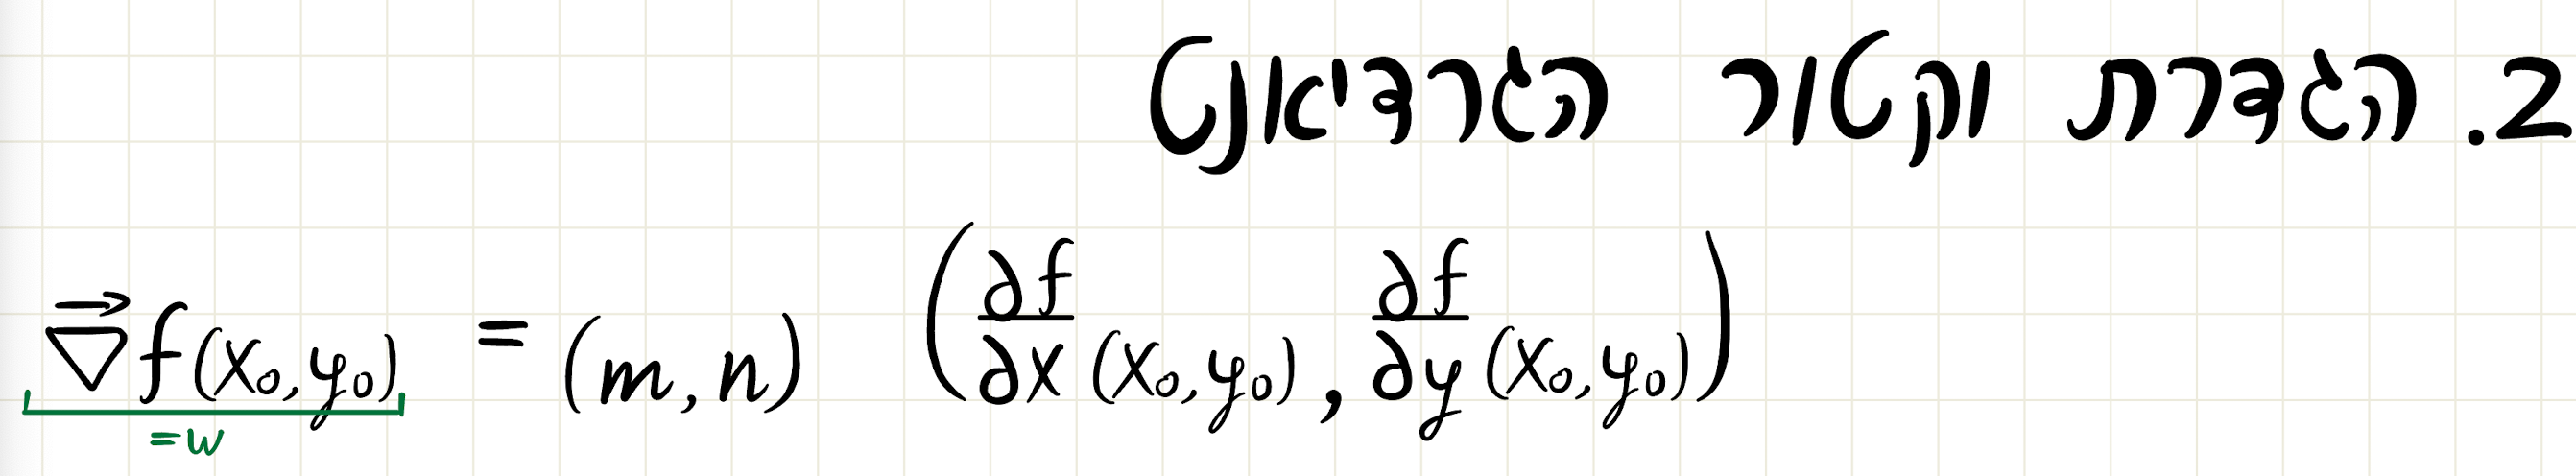 2. הגדרת וקטור הגרדיאנט
∇⃗f(x₀,y₀) = (m,n) (∂f/∂x (x₀,y₀), ∂f/∂y (x₀,y₀))
=w